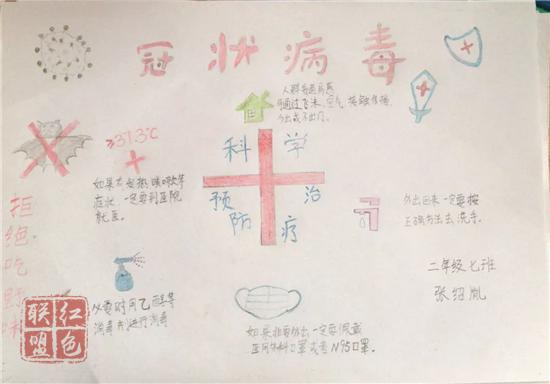 冠状病毒
人群普遍易感
通过飞沫、空气、接触传播,
≥37.3℃
科学
预防
治疗
如果有发热、咳嗽等
症状,一定要到医院
就医。
外出回来一定要按
正确方法去洗手。
拒绝吃野味
必要时用乙醇等
消毒剂进行消毒
如果非要外出一定要佩戴
医用外科口罩或者N95口罩。
二年级七班
红色
联盟